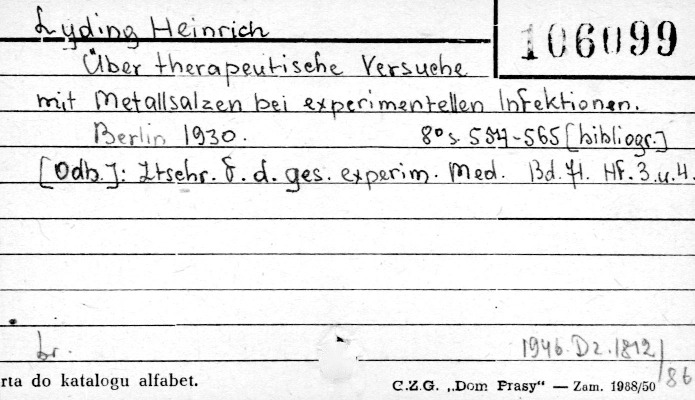 Lyding Heinrich
106099
Über therapeutische Versuche
mit Metallsalzen bei experimentellen Infektionen.
Berlin 1930. 8° s. 554-565 [bibliogr.]
[Odb.]: Ztschr. f. d. ges. experim. Med. Bd. 71. Hf. 3.u.4.
br. 1946.Dz.1812/86
rta do katalogu alfabet. C.Z.G. „Dom Prasy" — Zam. 1988/50